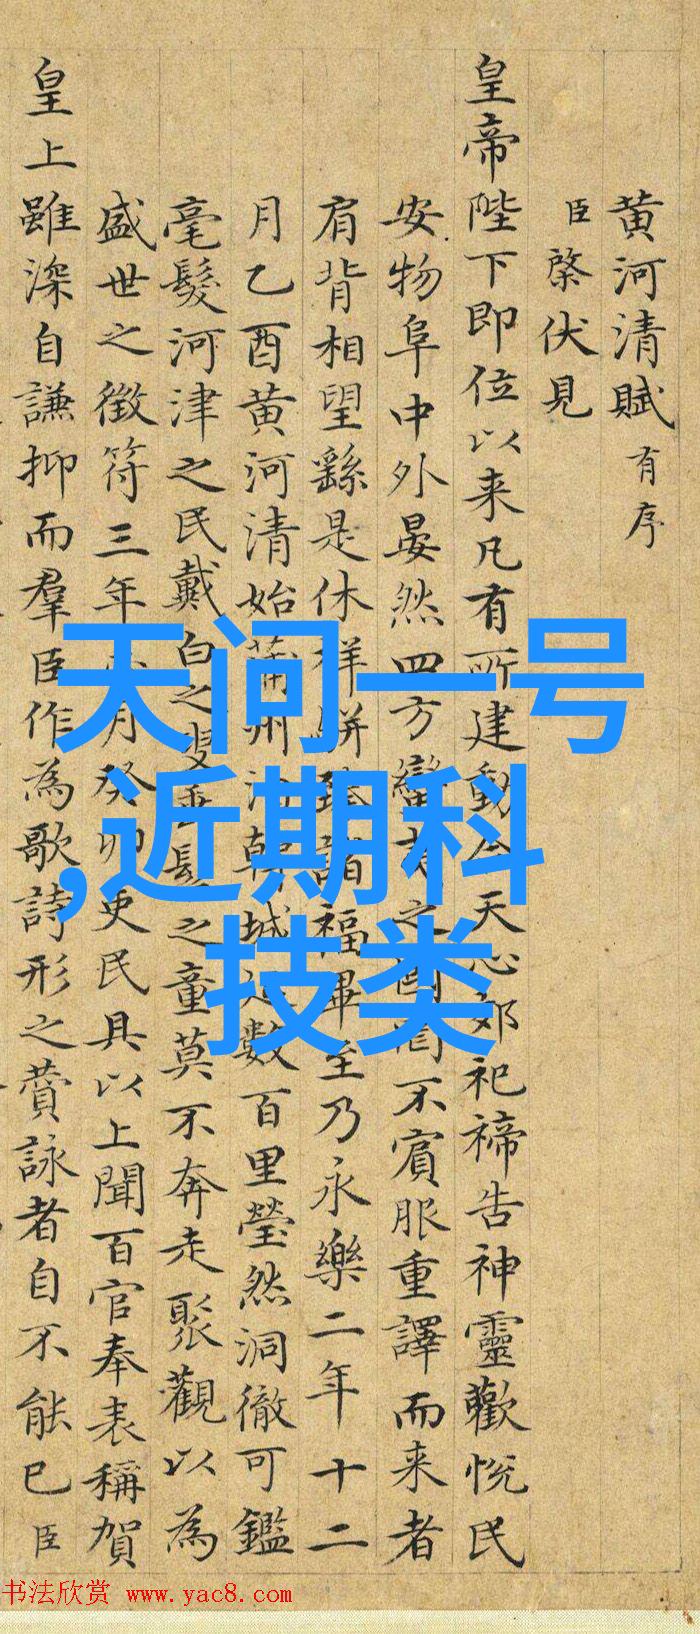 黄河清賦 有序
臣棨伏見
皇帝陛下即位以来凡有所建動合天心郊祀禘告神靈歡悅民
安物阜中外晏然四方蠻夷之國罔不賓服重譯而来者
肩背相望繇是休祥駢臻諸福畢至乃永樂二年十二
月乙酉黄河清始蒲州韓城數百里瑩然洞徹可鑑
毫髮河津之民戴白之叟垂髫之童莫不奔走聚觀以為
盛世之徵符三年月癸卯吏民具以上聞百官奉表稱賀
皇上雖深自謙抑而羣臣作為歌詩形之賛詠者自不能已臣
天问一号
,近期科
技类
书法欣赏 www.yac8.com